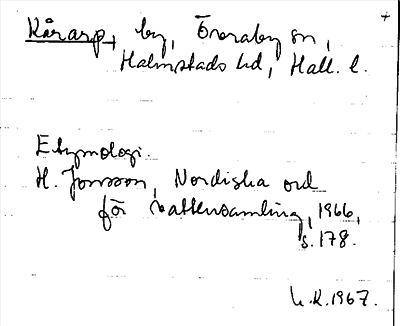 Kårarp, by, Övraby sn,
Halmstads hd, Hall. l.
Etymologi.
H. Jonsson, Nordiska ord
för vattensamling, 1966,
s. 178.
K.1967.